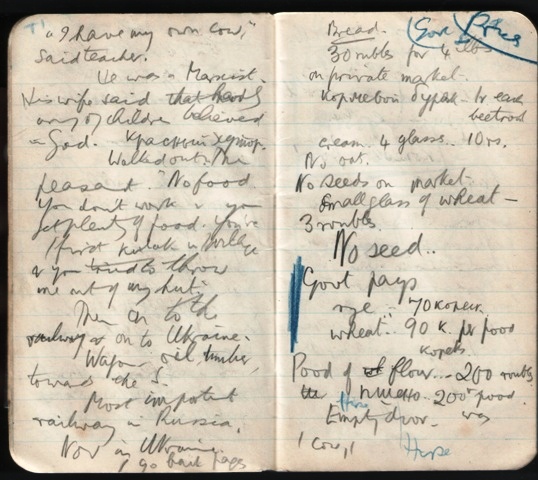 "I have my own cow,"
said teacher.
He was a Marxist.
His wife said that hardly
any of children believed
in God. Красный хутор.
Walked out. The
peasant. "No food
You don't work & you
get plenty of food. You're
first kulak in village
& you tried to throw
me out of my hut."
Then on to the
railway & on to Ukraine.
Wagons oil timber,
towards the S.
Most important
railway in Russia.
Now in Ukraine.
go back pages
Bread. Govt Prices
30 roubles for 4 lbs
on private market.
кормовой бурак 1r each
beetroot
cream 4 glasses 10rs.
No oat.
No seeds on market
Small glass of wheat –
3 roubles.
No seed..
Govt pays
rye - 70 kopeks.
wheat.. 90 K. per pood
kopeks
Pood of flour... 200 roubles
200 pood.
Here
Empty
1 cow,